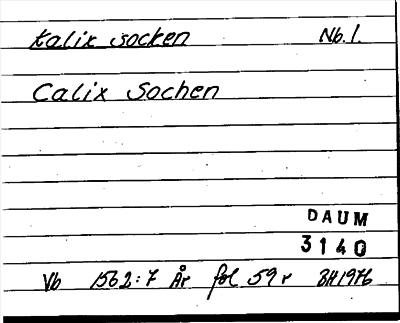 Kalix socken Nb.1.
Calix Sochen
DAUM
3140
Vb 1562:7 År fol 59r BH1976